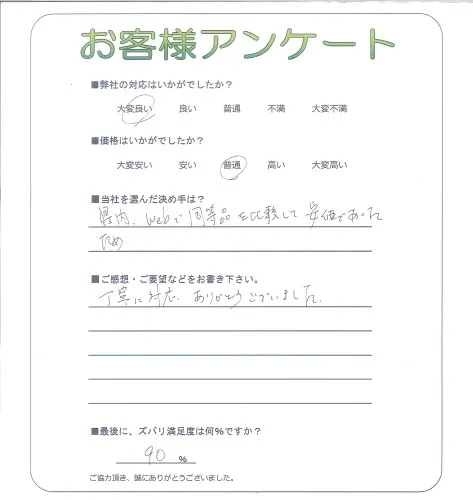 お客様アンケート
■弊社の対応はいかがでしたか？
大変良い 良い 普通 不満 大変不満
■価格はいかがでしたか？
大変安い 安い 普通 高い 大変高い
■当社を選んだ決め手は？
県内、Webで同等品を比較して安価であった
ため
■ご感想・ご要望などをお書き下さい。
丁寧に対応、ありがとうございました。
■最後に、ズバリ満足度は何%ですか？
90 %
ご協力頂き、誠にありがとうございました。